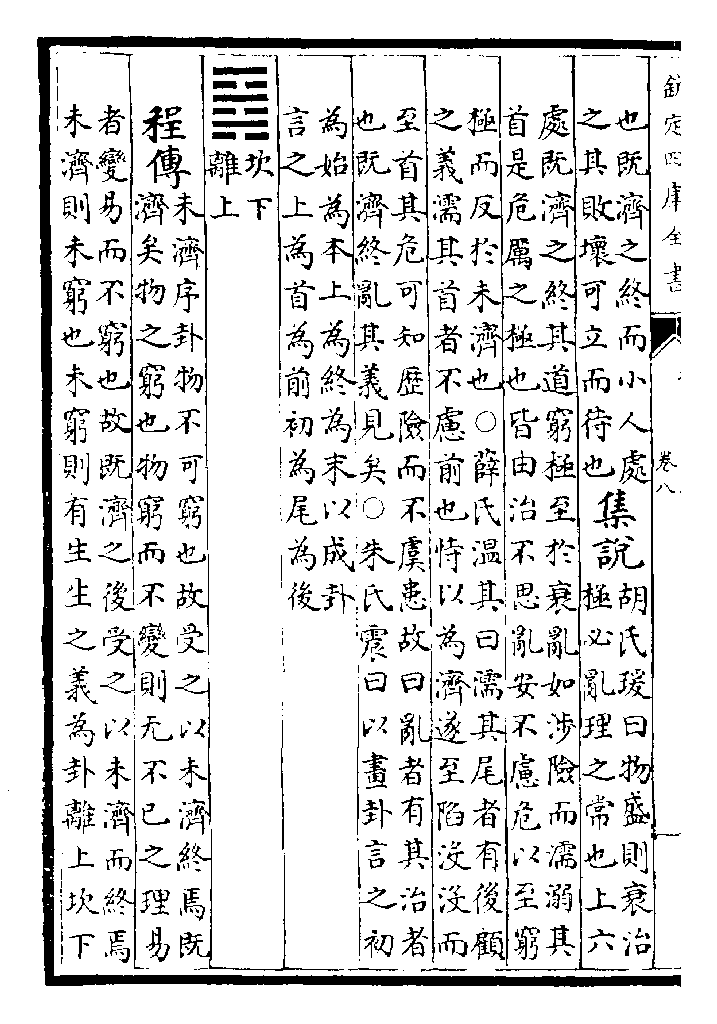 欽定四庫全書 卷八
也既濟之終而小人處
之其敗壞可立而待也
集說
胡氏瑗曰物盛則衰治
極必亂理之常也上六
處既濟之終其道窮極至於衰亂如涉險而濡溺其
首是危厲之極也皆由治不思亂安不慮危以至窮
極而反於未濟也○薛氏溫其曰濡其尾者有後顧
之義濡其首者不慮前也恃以為濟遂至陷沒沒而
至首其危可知歷險而不虞患故曰亂者有其治者
也既濟終亂其義見矣○朱氏震曰以畫卦言之初
為始為本上為終為末以成卦
言之上為首為前初為尾為後
坎下
離上
程傳
未濟序卦物不可窮也故受之以未濟終焉既
濟矣物之窮也物窮而不變則无不已之理易
者變易而不窮也故既濟之後受之以未濟而終焉
未濟則未窮也未窮則有生生之義為卦離上坎下